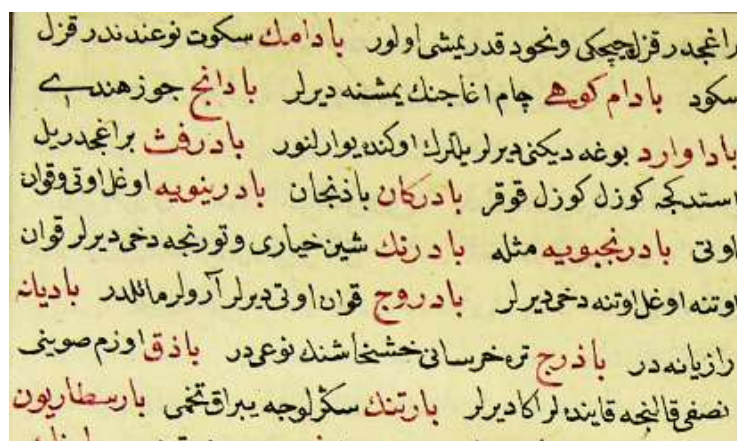 راغجدر قزل چیچکی ونخود قدر یمشی اولور بادامك سکوت نوعندندر قزل
سکود بادام کوهی چام اغاجنك یمشنه دیرلر بادانج جوز هندی
باداوارد بوغه دیکنی دیرلر یللرك اوکنده یوارلنور بادرفث براغجدر یل
استدکجه کوزل کوزل قوقر بادرکان باذنجان بادرینویه اوغل اوتی وقوان
اوتی بادرنجبویه مثله بادرنك شین خیاری وتورنجه دخی دیرلر قوان
اوتنه اوغل اوتنه دخی دیرلر بادروج قوان اوتی دیرلر آرولر مائلدر بادیانه
رازیانه در باذرج تره خرسانی خشخاشنك نوعی در باذق اوزم صوینی
نصفی قالنجه قاینده لر اکا دیرلر بارتنك سکرلوجه یبراق تخمی بارسطاریون